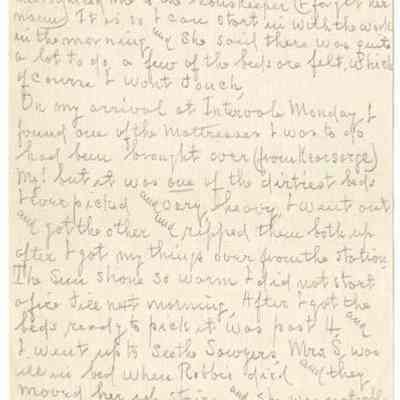 me to the Housekeeper (I forget her
name) It is so I can start in with the work
in the morning, and she said there was quite
a lot to do, a few of the beds are felt, which
of course I wont touch,
On my arrival at Intervale Monday I
found one of the Mattresses I was to do
had been brought over (from Kearsarge)
My! but it was one of the dirtiest beds
I ever picked and very heavy, I went out
and got the other and ripped them both up
after I got my things over from the station.
The Sun shone so warm I did not start
a fire till next morning, After I got the
beds ready to pick it was past 4 and
I went up to See the Sawyers, Mrs S. was
ill in bed when Robbie died and they
moved her and she was